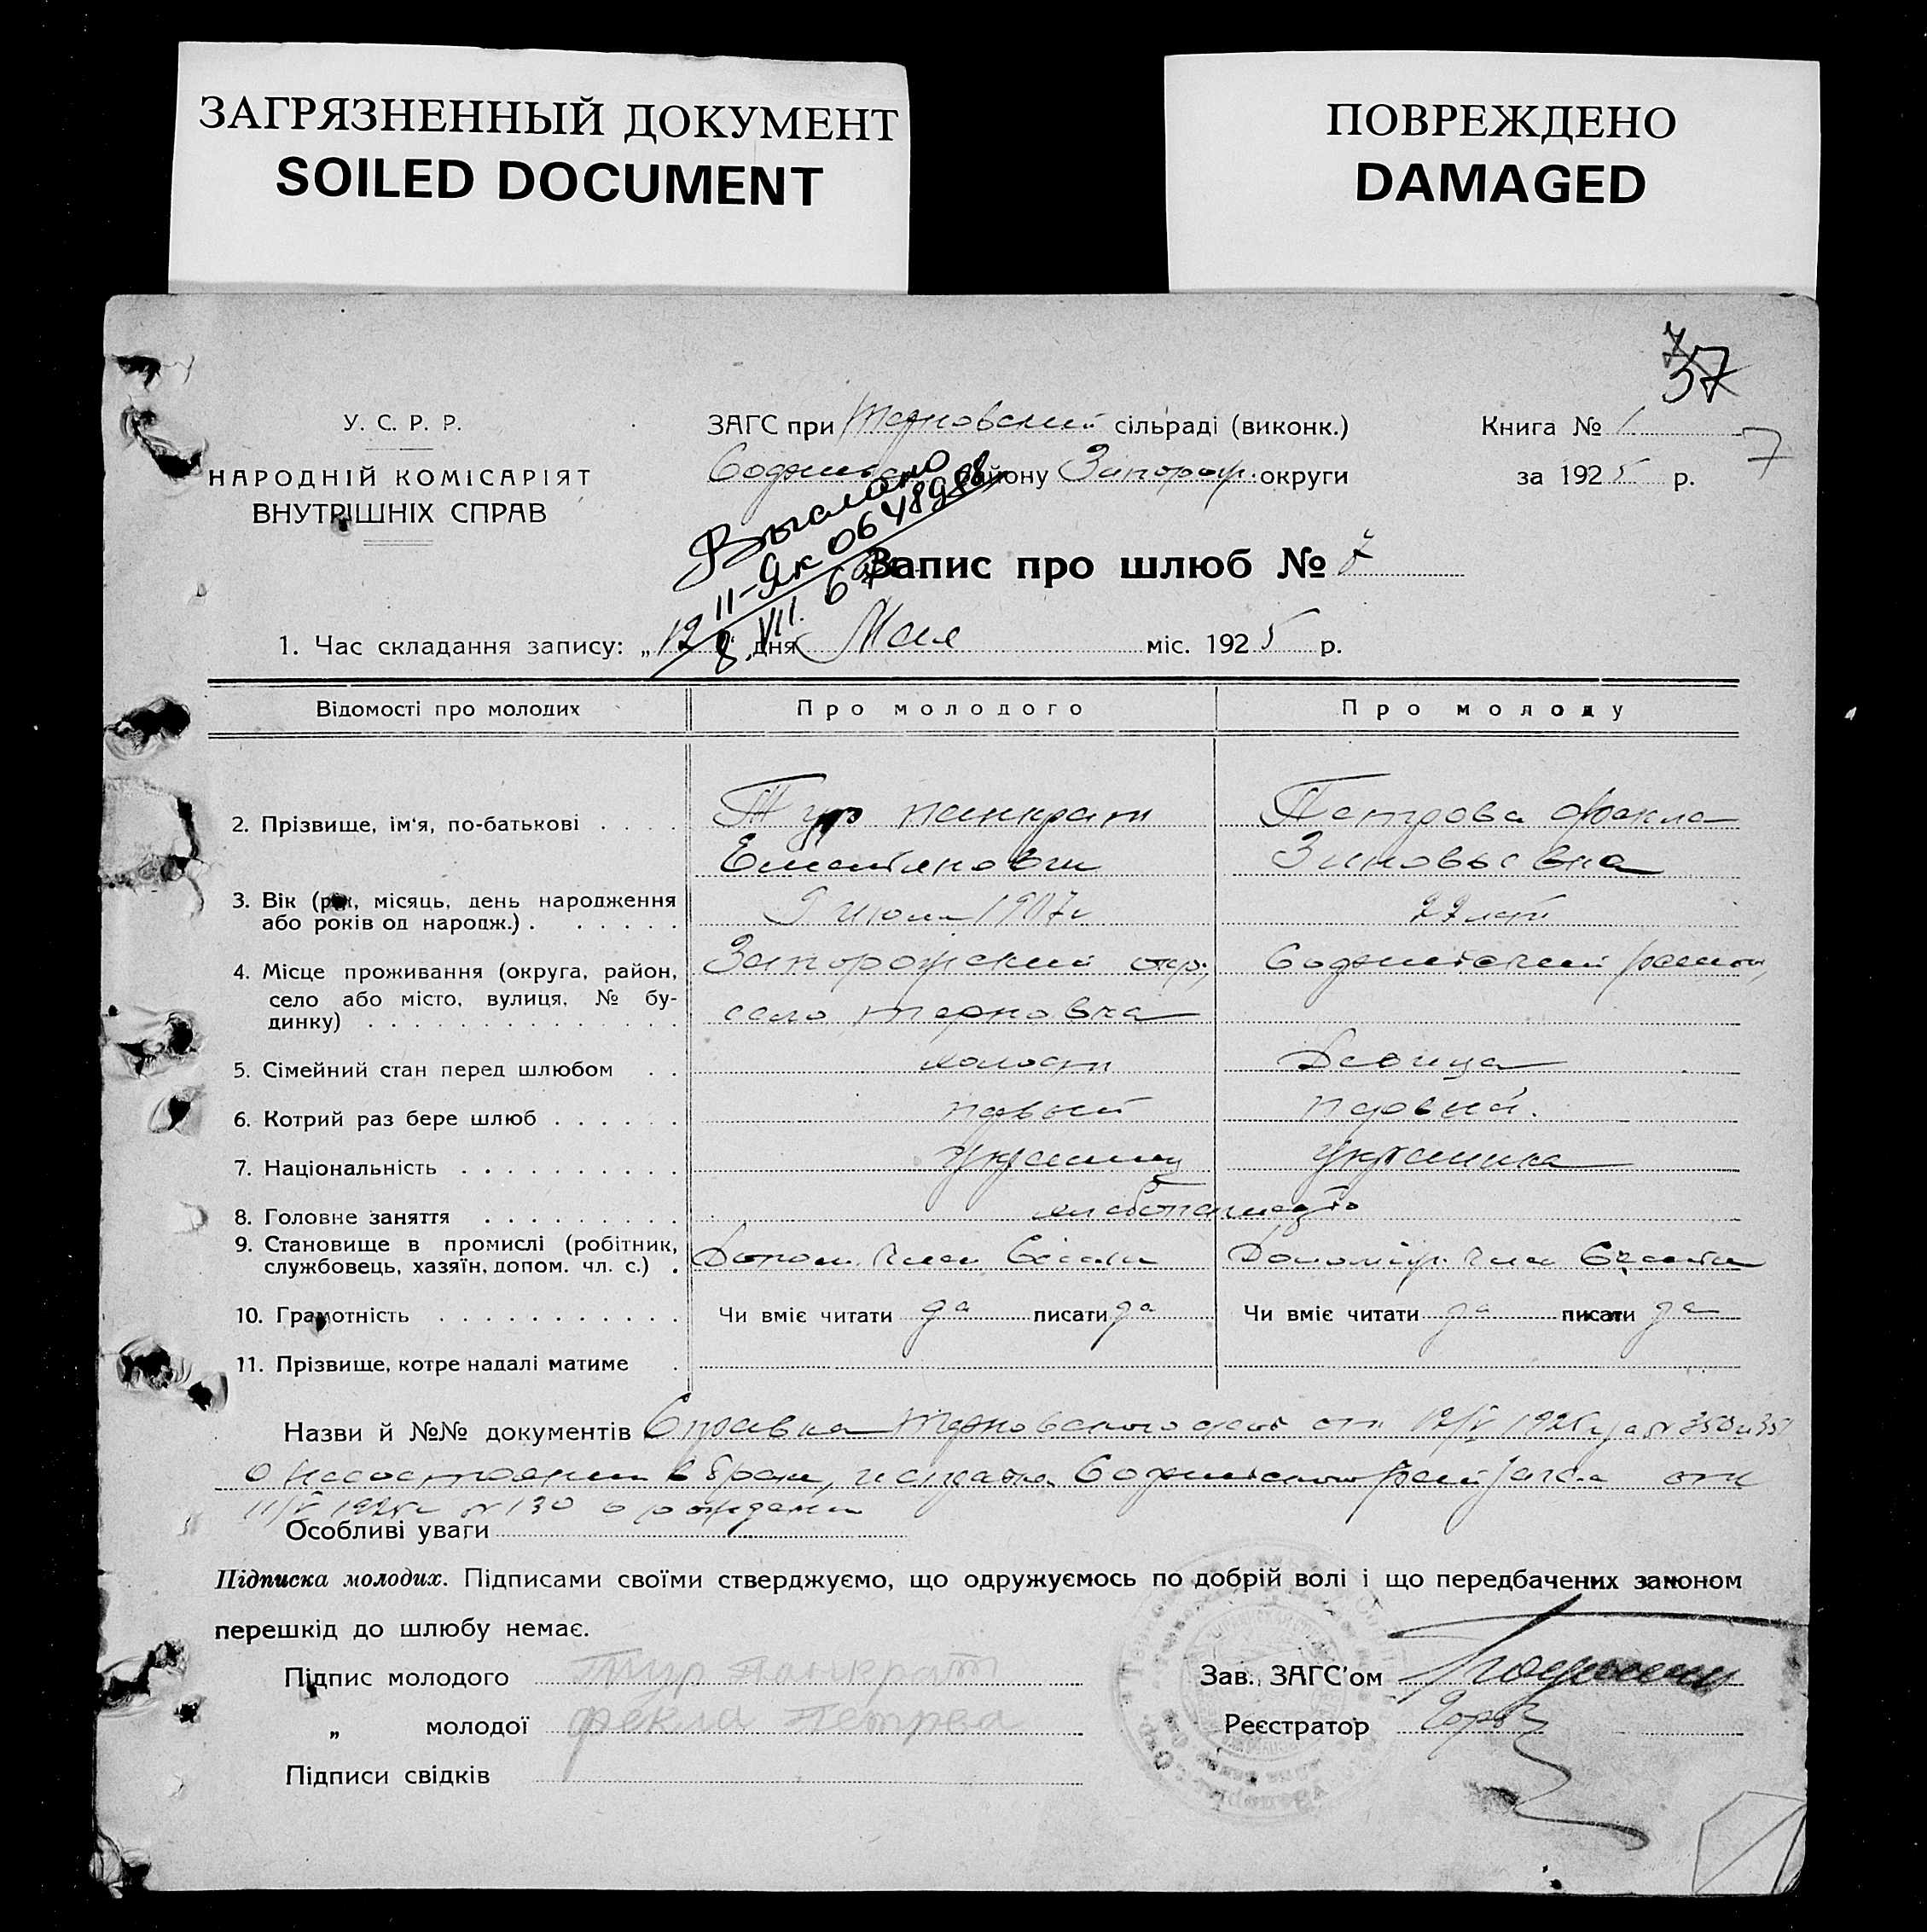 ЗАГРЯЗНЕННЫЙ ДОКУМЕНТ
SOILED DOCUMENT
ПОВРЕЖДЕНО
DAMAGED
37
7
У. С. Р. Р.
НАРОДНІЙ КОМІСАРІЯТ
ВНУТРІШНІХ СПРАВ
ЗАГС при Терновский сільраді (виконк.)
району Запорож. округи
Книга № 1
за 1925 р.
II-ЯК 0648988
8. VII.
Запис про шлюб № 7
1. Час складання запису: „12 дня Мая міс. 1925 р.
Відомості про молодих Про молодого Про молоду
2. Прізвище, ім'я, по-батькові . . . . Тур Панкрат Петрова Фекла
Зиновьевна
3. Вік (рік, місяць, день народження
або років од народж.) . . . . . . 1907г 22 лет
4. Місце проживання (округа, район,
село або місто, вулиця, № бу-
динку) . . . . . . . . . . . . . .
Запорожский окр., район,
село Терновка
5. Сімейний стан перед шлюбом . . холост Девица
6. Котрий раз бере шлюб . . . . . . первый первый.
7. Національність . . . . . . . . . . украинец украинка
8. Головне заняття . . . . . . . . . хлебопашество
9. Становище в промислі (робітник,
службовець, хазяїн, допом. чл. с.) .
Допом. член Допоміж. член
10. Грамотність . . . . . . . . . . . Чи вміє читати да писати да Чи вміє читати да писати да
11. Прізвище, котре надалі матиме .
Назви й №№ документів Справка Терновского от 12/V 1925г за № 350 и 351
о несостоянии в браке, и от
11/V 1925г № 130 о рождении
Особливі уваги
Підписка молодих. Підписами своїми стверджуємо, що одружуємось по добрій волі і що передбачених законом
перешкід до шлюбу немає.
Підпис молодого Тур Панкрат
„ молодої Фекла Петрва
Підписи свідків
Зав. ЗАГС'ом
Реєстратор